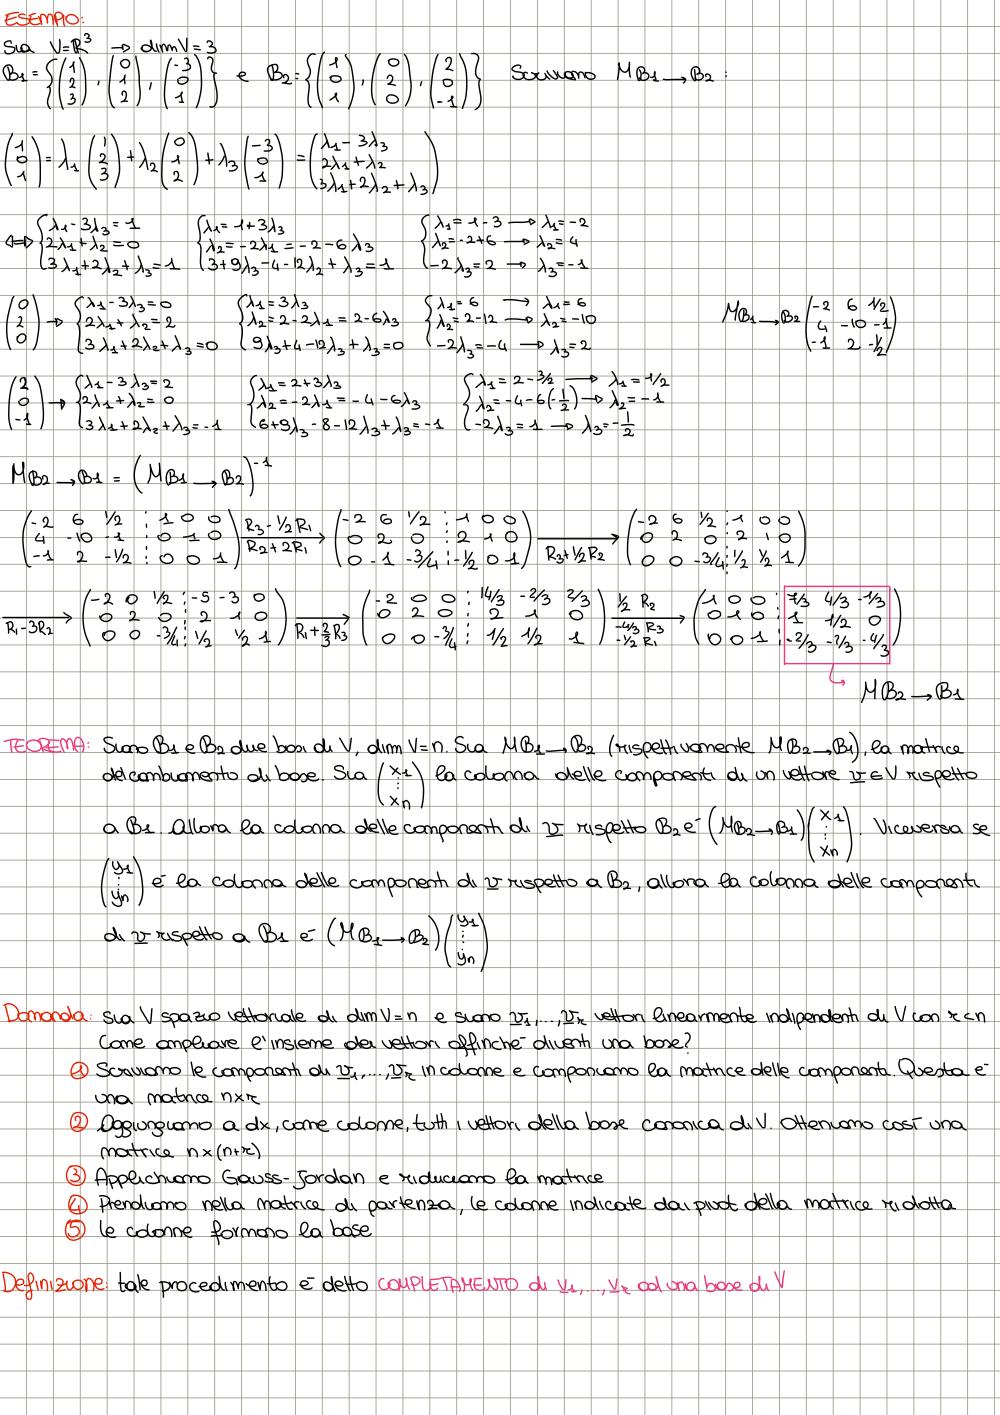 ESEMPIO:
Sia V=ℝ³ → dimV=3
B₁={(1 2 3), (0 1 2), (-3 0 1)} e B₂={(1 0 1), (0 2 0), (2 0 -1)} Scriviamo MB₁→B₂ :
(1 0 1) = λ₁ (1 2 3) + λ₂ (0 1 2) + λ₃ (-3 0 1) = (λ₁-3λ₃ 2λ₁+λ₂ 3λ₁+2λ₂+λ₃)
⇔ {λ₁-3λ₃=1 {λ₁=1+3λ₃ {λ₁=1-3 → λ₁=-2
2λ₁+λ₂=0 λ₂=-2λ₁=-2-6λ₃ λ₂=-2+6 → λ₂=4
3λ₁+2λ₂+λ₃=1 3+9λ₃-4-12λ₂+λ₃=1 -2λ₃=2 → λ₃=-1
(0 2 0) → {λ₁-3λ₃=0 {λ₁=3λ₃ {λ₁=6 → λ₁=6
2λ₁+λ₂=2 λ₂=2-2λ₁=2-6λ₃ λ₂=2-12 → λ₂=-10
3λ₁+2λ₂+λ₃=0 9λ₃+4-12λ₃+λ₃=0 -2λ₃=-4 → λ₃=2
MB₁→B₂ (-2 6 1/2
4 -10 -1
-1 2 -1/2)
(2 0 -1) → {λ₁-3λ₃=2 {λ₁=2+3λ₃ {λ₁=2-3/2 → λ₁=1/2
2λ₁+λ₂=0 λ₂=-2λ₁=-4-6λ₃ λ₂=-4-6(-1/2) → λ₂=-1
3λ₁+2λ₂+λ₃=-1 6+9λ₃-8-12λ₃+λ₃=-1 -2λ₃=1 → λ₃=-1/2
MB₂→B₁ = (MB₁→B₂)⁻¹
(-2 6 1/2 ⋮ 1 0 0) R₃-1/2R₁ (-2 6 1/2 ⋮ 1 0 0) (-2 6 1/2 ⋮ 1 0 0)
(4 -10 -1 ⋮ 0 1 0) R₂+2R₁ → (0 2 0 ⋮ 2 1 0) R₃+1/2R₂ → (0 2 0 ⋮ 2 1 0)
(-1 2 -1/2 ⋮ 0 0 1) (0 -1 -3/4 ⋮ -1/2 0 1) (0 0 -3/4 ⋮ 1/2 1/2 1)
→ (-2 0 1/2 ⋮ -5 -3 0) → (-2 0 0 ⋮ 14/3 -2/3 2/3) 1/2 R₂ (1 0 0 ⋮ 7/3 4/3 -1/3)
R₁-3R₂ (0 2 0 ⋮ 2 1 0) R₁+2/3R₃ (0 2 0 ⋮ 2 1 0) -4/3 R₃ → (0 1 0 ⋮ 1 1/2 0)
(0 0 -3/4 ⋮ 1/2 1/2 1) (0 0 -3/4 ⋮ 1/2 1/2 1) -1/2 R₁ (0 0 1 ⋮ -2/3 -2/3 -4/3)
MB₂→B₁
TEOREMA: Siano B₁ e B₂ due basi di V, dimV=n. Sia MB₁→B₂ (rispettivamente MB₂→B₁), la matrice
del cambiamento di base. Sia (x₁ ⋮ xₙ) la colonna delle componenti di un vettore v∈V rispetto
a B₁. Allora la colonna delle componenti di v rispetto B₂ è (MB₂→B₁)(x₁ ⋮ xₙ). Viceversa se
(y₁ ⋮ yₙ) è la colonna delle componenti di v rispetto a B₂, allora la colonna delle componenti
di v rispetto a B₁ è (MB₁→B₂)(y₁ ⋮ yₙ)
Domanda: sia V spazio vettoriale di dimV=n e siano v₁,...,vᵣ vettori linearmente indipendenti di V con r<n
Come ampliare l'insieme dei vettori affinchè diventi una base?
① Scriviamo le componenti di v₁,...,vᵣ in colonne e componiamo la matrice delle componenti. Questa è
una matrice n×r
② Aggiungiamo a dx, come colonne, tutti i vettori della base canonica di V. Otteniamo così una
matrice n×(n+r)
③ Applichiamo Gauss-Jordan e riduciamo la matrice
④ Prendiamo nella matrice di partenza, le colonne indicate dai pivot della matrice ridotta
⑤ le colonne formano la base
Definizione: tale procedimento è detto COMPLETAMENTO di v₁,...,vᵣ ad una base di V